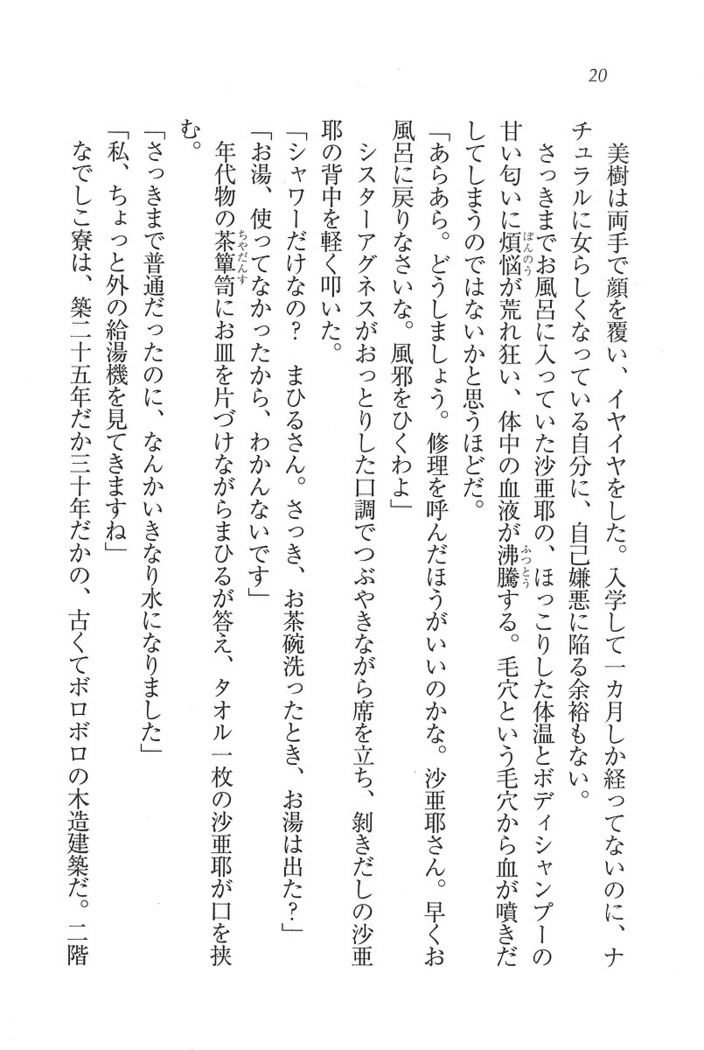 20
美樹は両手で顔を覆い、イヤイヤをした。入学して一カ月しか経ってないのに、ナ
チュラルに女らしくなっている自分に、自己嫌悪に陥る余裕もない。
さっきまでお風呂に入っていた沙亜耶の、ほっこりした体温とボディシャンプーの
甘い匂いに煩悩が荒れ狂い、体中の血液が沸騰する。毛穴という毛穴から血が噴きだ
ぼんのう
ふつとう
してしまうのではないかと思うほどだ。
「あらあら。どうしましょう。修理を呼んだほうがいいのかな。沙亜耶さん。早くお
風呂に戻りなさいな。風邪をひくわよ」
シスターアグネスがおっとりした口調でつぶやきながら席を立ち、剝きだしの沙亜
耶の背中を軽く叩いた。
「シャワーだけなの?　まひるさん。さっき、お茶碗洗ったとき、お湯は出た?」
「お湯、使ってなかったから、わかんないです」
年代物の茶簞笥にお皿を片づけながらまひるが答え、タオル一枚の沙亜耶が口を挟
ちやだんす
む。
「さっきまで普通だったのに、なんかいきなり水になりました」
「私、ちょっと外の給湯機を見てきますね」
なでしこ寮は、築二十五年だか三十年だかの、古くてボロボロの木造建築だ。二階